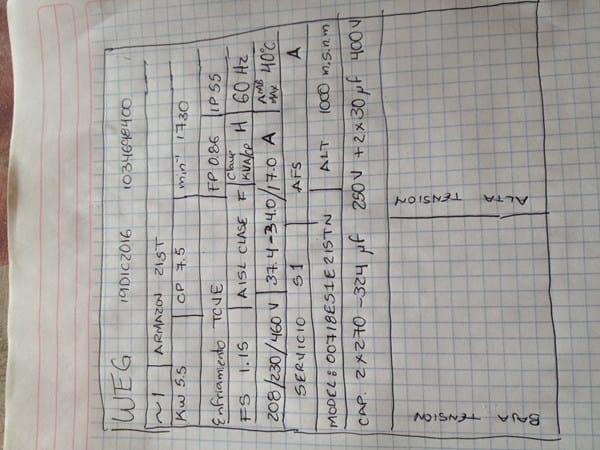 WEG 19DIC2016 1034698400
~1 ARMAZON 215T
KW 5.5 CP 7.5 min⁻¹ 1730
Enfriamiento TCVE FP 0.86 IP55
FS 1.15 AISL CLASE F Clave KVA/CP H 60 Hz
208/230/460 V 37.4-34.0/17.0 A AMB MAX 40°C
SERVICIO S1 AFS A
MODEL: 00718ES1E215TN ALT 1000 m.s.n.m
CAP. 2x270-324 µf 250V + 2x30 µf 400V
BAJA TENSION
ALTA TENSION